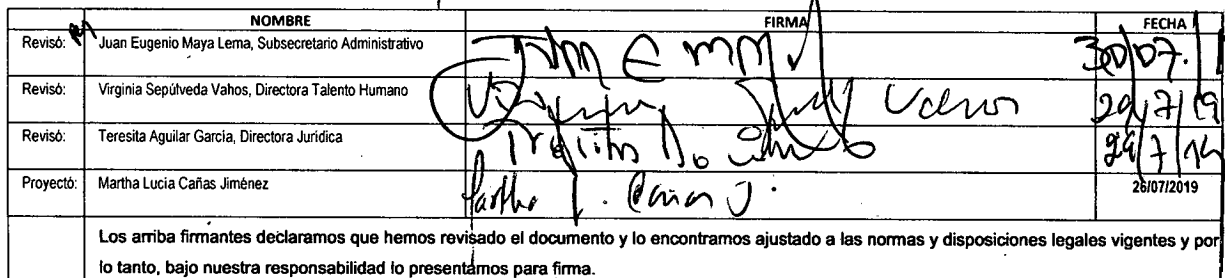 NOMBRE FIRMA FECHA
Revisó: Juan Eugenio Maya Lema, Subsecretario Administrativo 30/07.
Revisó: Virginia Sepúlveda Vahos, Directora Talento Humano 29/7/19
Revisó: Teresita Aguilar García, Directora Jurídica 29/7/19
Proyectó: Martha Lucia Cañas Jiménez Martha L. Cañas J. 26/07/2019
Los arriba firmantes declaramos que hemos revisado el documento y lo encontramos ajustado a las normas y disposiciones legales vigentes y por
lo tanto, bajo nuestra responsabilidad lo presentamos para firma.